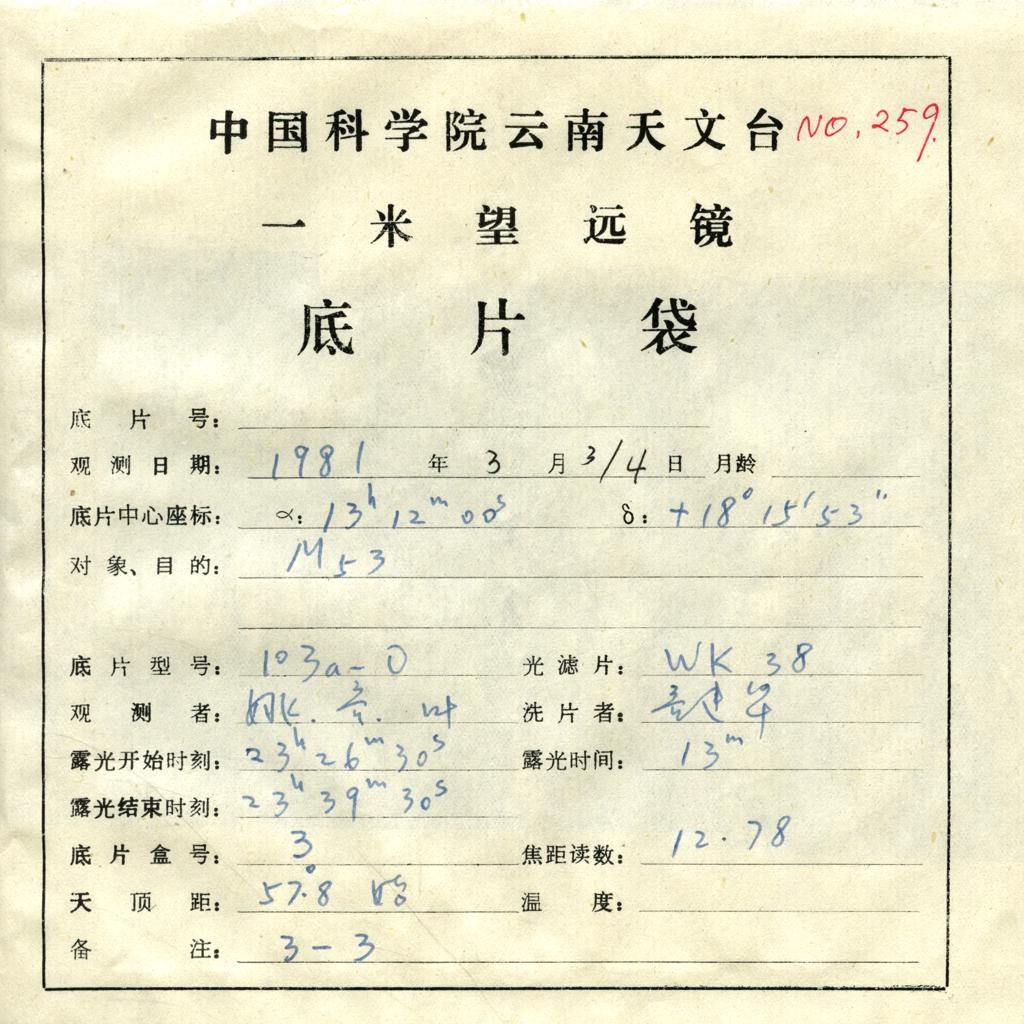 中国科学院云南天文台 NO. 259.
一米望远镜
底片袋
底片号：
观测日期： 1981 年 3 月 3/4 日 月龄
底片中心座标： α: 13h 12m 00s δ: +18° 15′ 53″
对象、目的： M53
底片型号： 103a-O 光滤片： WK 38
观测者： 洗片者：
露光开始时刻： 23h 26m 30s 露光时间： 13m
露光结束时刻： 23h 39m 30s
底片盒号： 3 焦距读数： 12.78
天顶距： 57°.8 始 温度：
备注： 3-3